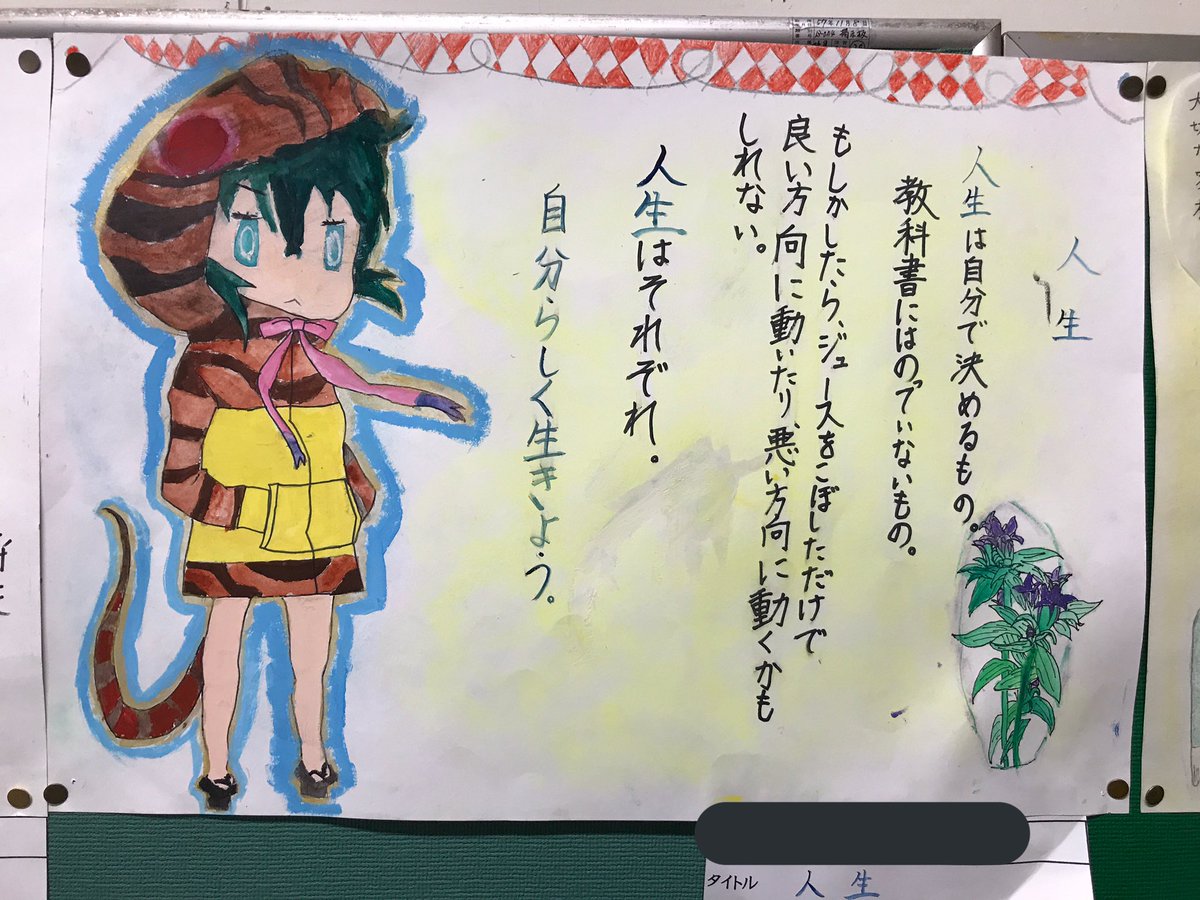 人生
人生は自分で決めるもの。
教科書にはのっていないもの。
もしかしたら、ジュースをこぼしただけで
良い方向に動いたり、悪い方向に動くかも
しれない。
人生はそれぞれ。
自分らしく生きよう。
タイトル 人生